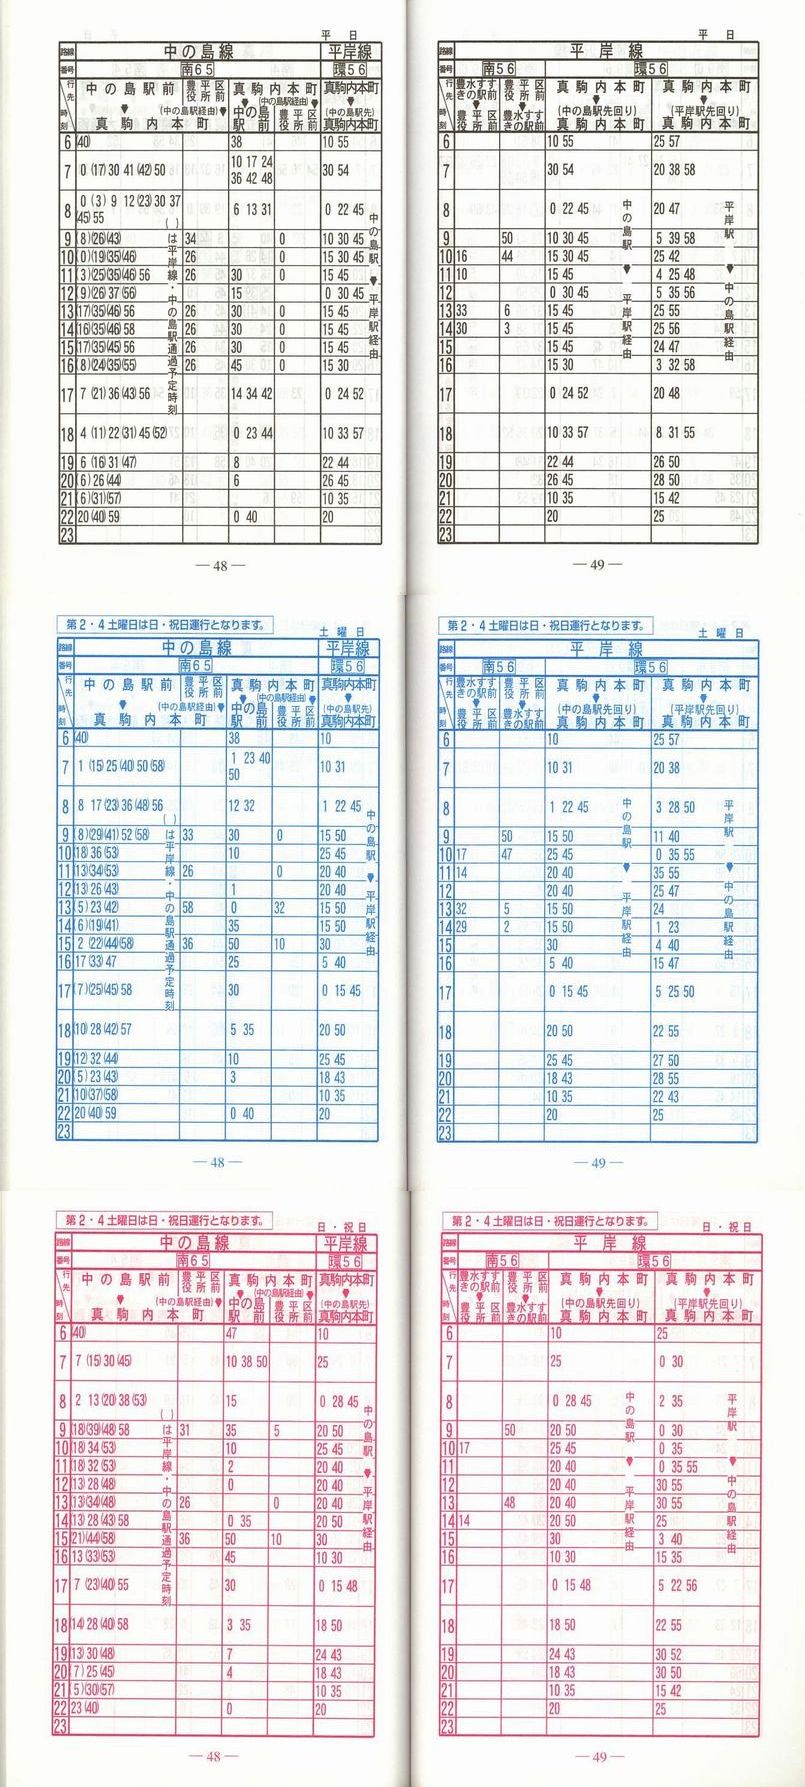 平 日
路線 中の島線 平岸線
番号 南65 環56
行先 中の島駅前 豊平区役所前 真駒内本町 真駒内本町
(中の島駅経由) (中の島駅経由) (中の島駅先)
時刻 真駒内本町 中の島駅前 豊平区役所前 真駒内本町
6 40) 38 10 55
7 0 (17) 30 41 (42) 50 10 17 24 36 42 48 30 54
8 0 (3) 9 12 (23) 30 37 45) 55 6 13 31 0 22 45
9 (8)(26)(43) 34 0 10 30 45
10 (0)(19)(35)(46) 26 15 30 45
11 (3)(25)(35)(46) 56 26 30 0 15 45
12 (9)(26)(37)(56) 15 0 30 45
13 (17)(35)(46) 56 26 30 0 15 45
14 (16)(35)(46) 58 26 30 0 15 45
15 (17)(35)(45) 56 26 30 0 15 45
16 (8)(24)(35)(55) 26 45 0 15 30
17 7 (21) 36 (43) 56 14 34 42 0 24 52
18 4 (11) 22 (31) 45 (52) 0 23 44 10 33 57
19 6 (16) 31 (47) 8 22 44
20 (6) 26 (44) 6 26 45
21 (6)(31)(57) 10 35
22 20 (40) 59 0 40 20
23
( )は平岸線・中の島駅通過予定時刻
中の島駅 平岸駅経由
— 48 —
平 日
路線 平岸線
番号 南56 環56
行先 豊水すすきの駅前 豊平区役所前 真駒内本町 真駒内本町
(中の島駅先回り) (平岸駅先回り)
時刻 豊平区役所前 豊水すすきの駅前 真駒内本町 真駒内本町
6 10 55 25 57
7 30 54 20 38 58
8 0 22 45 20 47
9 50 10 30 45 5 39 58
10 16 44 15 30 45 25 42
11 10 15 45 4 25 48
12 0 30 45 5 35 56
13 33 6 15 45 25 55
14 30 3 15 45 25 56
15 15 45 24 47
16 15 30 3 32 58
17 0 24 52 20 48
18 10 33 57 8 31 55
19 22 44 26 50
20 26 45 28 50
21 10 35 15 42
22 20 25
23
中の島駅 平岸駅経由
平岸駅 中の島駅経由
— 49 —
第2・4土曜日は日・祝日運行となります。
土曜日
路線 中の島線 平岸線
番号 南65 環56
行先 中の島駅前 豊平区役所前 真駒内本町 真駒内本町
(中の島駅経由) (中の島駅経由) (中の島駅先)
時刻 真駒内本町 中の島駅前 豊平区役所前 真駒内本町
6 40) 38 10
7 1 (15) 25 (40) 50 (58) 1 23 40 50 10 31
8 8 17 (23) 36 (48) 56 12 32 1 22 45
9 (8)(29)(41) 52 (58) 33 30 0 15 50
10 (18) 36 (53) 10 25 45
11 (13)(34)(53) 26 0 20 40
12 (13) 26 (43) 1 20 40
13 (5) 23 (42) 58 0 32 15 50
14 (6)(19)(41) 35 15 50
15 2 (22)(44)(58) 36 50 10 30
16 17 (33) 47 25 5 40
17 (7)(25)(45) 58 30 0 15 45
18 (10) 28 (42) 57 5 35 20 50
19 (12) 32 (44) 10 25 45
20 (5) 23 (43) 3 18 43
21 (10)(37)(58) 10 35
22 20 (40) 59 0 40 20
23
( )は平岸線・中の島駅通過予定時刻
中の島駅 平岸駅経由
— 48 —
第2・4土曜日は日・祝日運行となります。
土曜日
路線 平岸線
番号 南56 環56
行先 豊水すすきの駅前 豊平区役所前 真駒内本町 真駒内本町
(中の島駅先回り) (平岸駅先回り)
時刻 豊平区役所前 豊水すすきの駅前 真駒内本町 真駒内本町
6 10 25 57
7 10 31 20 38
8 1 22 45 3 28 50
9 50 15 50 11 40
10 17 47 25 45 0 35 55
11 14 20 40 35 55
12 20 40 25 47
13 32 5 15 50 24
14 29 2 15 50 1 23
15 30 4 40
16 5 40 15 47
17 0 15 45 5 25 50
18 20 50 22 55
19 25 45 27 50
20 18 43 28 55
21 10 35 22 43
22 20 25
23
中の島駅 平岸駅経由
平岸駅 中の島駅経由
— 49 —
第2・4土曜日は日・祝日運行となります。
日・祝日
路線 中の島線 平岸線
番号 南65 環56
行先 中の島駅前 豊平区役所前 真駒内本町 真駒内本町
(中の島駅経由) (中の島駅経由) (中の島駅先)
時刻 真駒内本町 中の島駅前 豊平区役所前 真駒内本町
6 40) 47 10
7 7 (15) 30 (45) 10 38 50 25
8 2 13 (20) 38 (53) 15 0 28 45
9 (18)(39)(48) 58 31 35 5 20 50
10 (18) 34 (53) 10 25 45
11 (18) 32 (53) 2 20 40
12 (13) 28 (48) 0 20 40
13 (13)(34)(48) 26 0 20 40
14 (13) 28 (43) 58 0 35 20 50
15 (21)(44)(58) 36 50 10 30
16 13 (33)(53) 45 10 30
17 7 (23)(40) 55 30 0 15 48
18 (14) 28 (40) 58 3 35 18 50
19 (13) 30 (48) 7 24 43
20 (7) 25 (45) 4 18 43
21 (5)(30)(57) 10 35
22 23 (40) 0 20
23
( )は平岸線・中の島駅通過予定時刻
中の島駅 平岸駅経由
— 48 —
第2・4土曜日は日・祝日運行となります。
日・祝日
路線 平岸線
番号 南56 環56
行先 豊水すすきの駅前 豊平区役所前 真駒内本町 真駒内本町
(中の島駅先回り) (平岸駅先回り)
時刻 豊平区役所前 豊水すすきの駅前 真駒内本町 真駒内本町
6 10 25
7 25 0 30
8 0 28 45 2 35
9 50 20 50 0 30
10 17 25 45 0 35
11 20 40 0 35 55
12 20 40 30 55
13 48 20 40 30 55
14 14 20 50 25
15 30 3 40
16 10 30 15 35
17 0 15 48 5 22 56
18 18 50 22 55
19 24 43 30 52
20 18 43 30 50
21 10 35 15 42
22 20 25
23
中の島駅 平岸駅経由
平岸駅 中の島駅経由
— 49 —